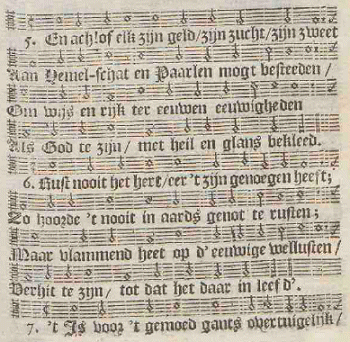 5. En ach! of elk zijn geld/zijn zucht/zijn zweet
Aan Hemel-schat en Paarlen mogt besteeden/
Om wijs en rijk ter eeuwen eeuwigheden
Als God te zijn/ met heil en glans bekleed.
6. Rust nooit het hert/eer 't zijn genoegen heeft;
Zo hoorde 't nooit in aards genot te rusten;
Maar vlammend heet op d' eeuwige wellusten/
Verhit te zijn/ tot dat het daar in leefd'.
7. 't Is voor 't gemoed gants overtuigelijk/